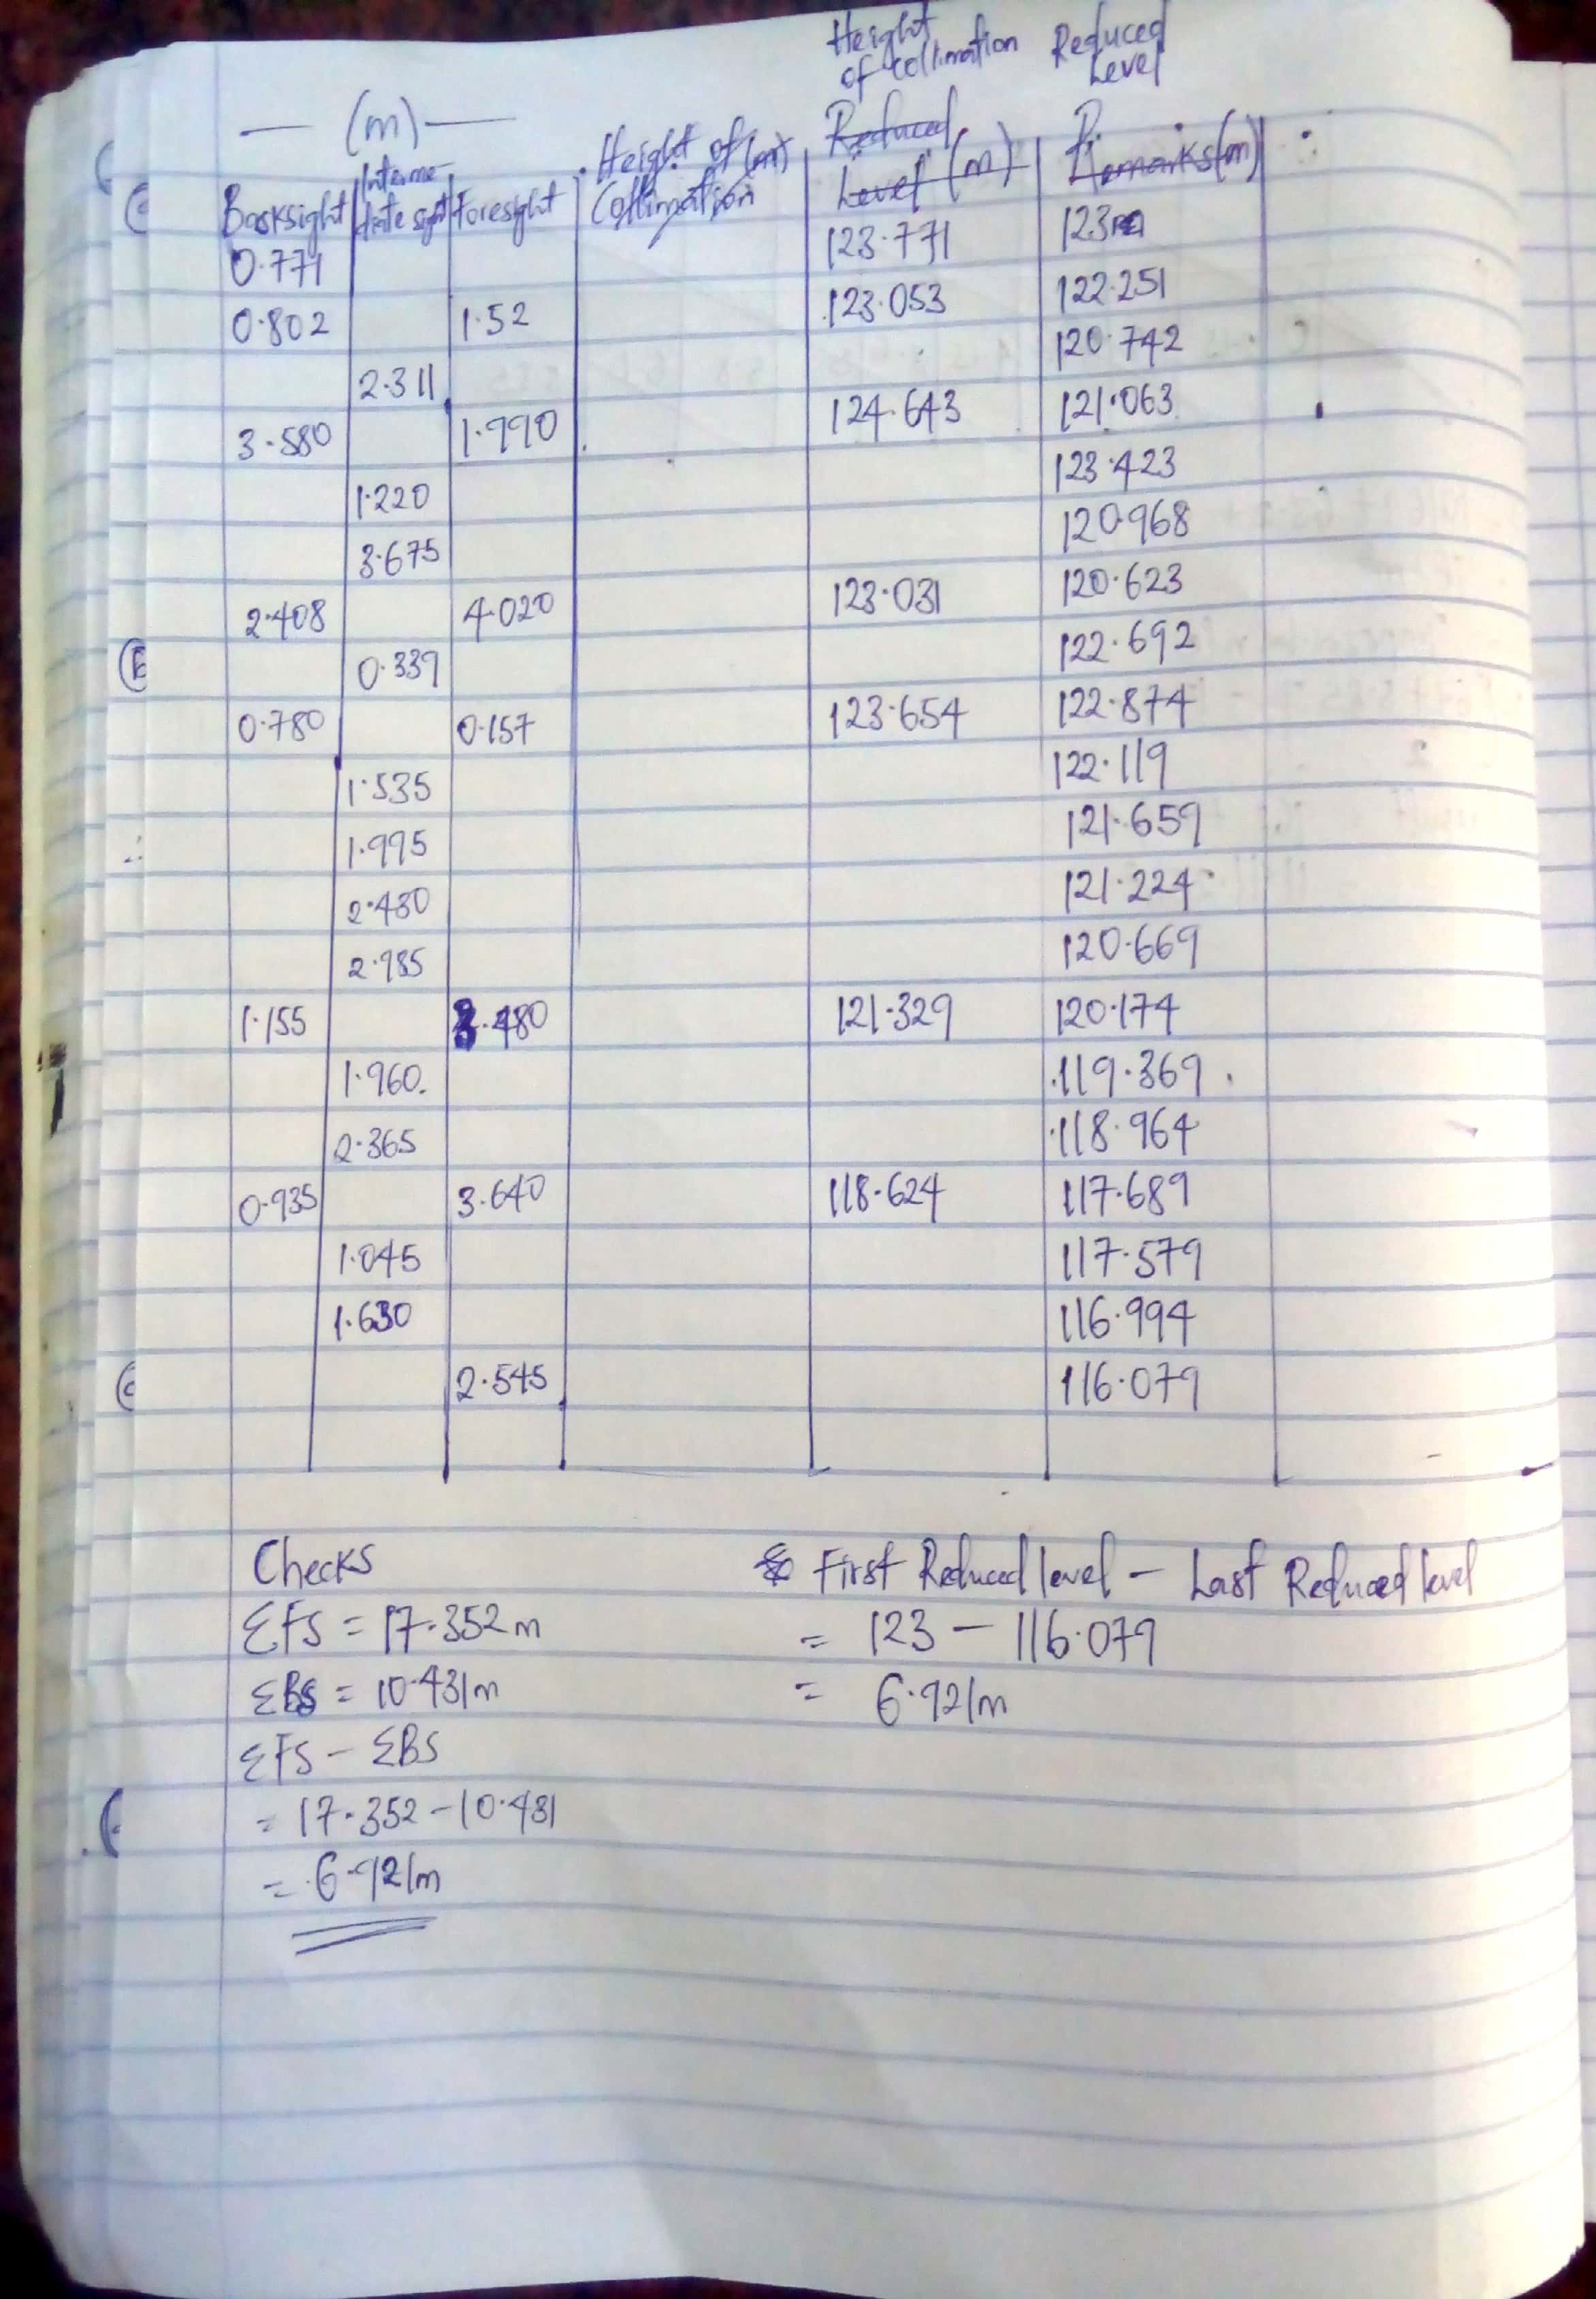 Height of collimation Reduced Level
— (m) —
Backsight Intermediate sight Foresight Height of (m) Collimation Reduced Level (m) Remarks (m)
0.771 123.771 123
0.802 1.52 123.053 122.251
2.311 120.742
3.580 1.990 124.643 121.063
1.220 123.423
3.675 120.968
2.408 4.020 123.031 120.623
0.339 122.692
0.780 0.157 123.654 122.874
1.535 122.119
1.995 121.659
2.430 121.224
2.985 120.669
1.155 3.480 121.329 120.174
1.960. 119.369
2.365 118.964
0.935 3.640 118.624 117.689
1.045 117.579
1.630 116.994
2.545 116.079
Checks
ΣFS = 17.352m
ΣBS = 10.431m
ΣFS - ΣBS
= 17.352 - 10.431
= 6.921m
First Reduced level - Last Reduced level
= 123 - 116.079
= 6.921m